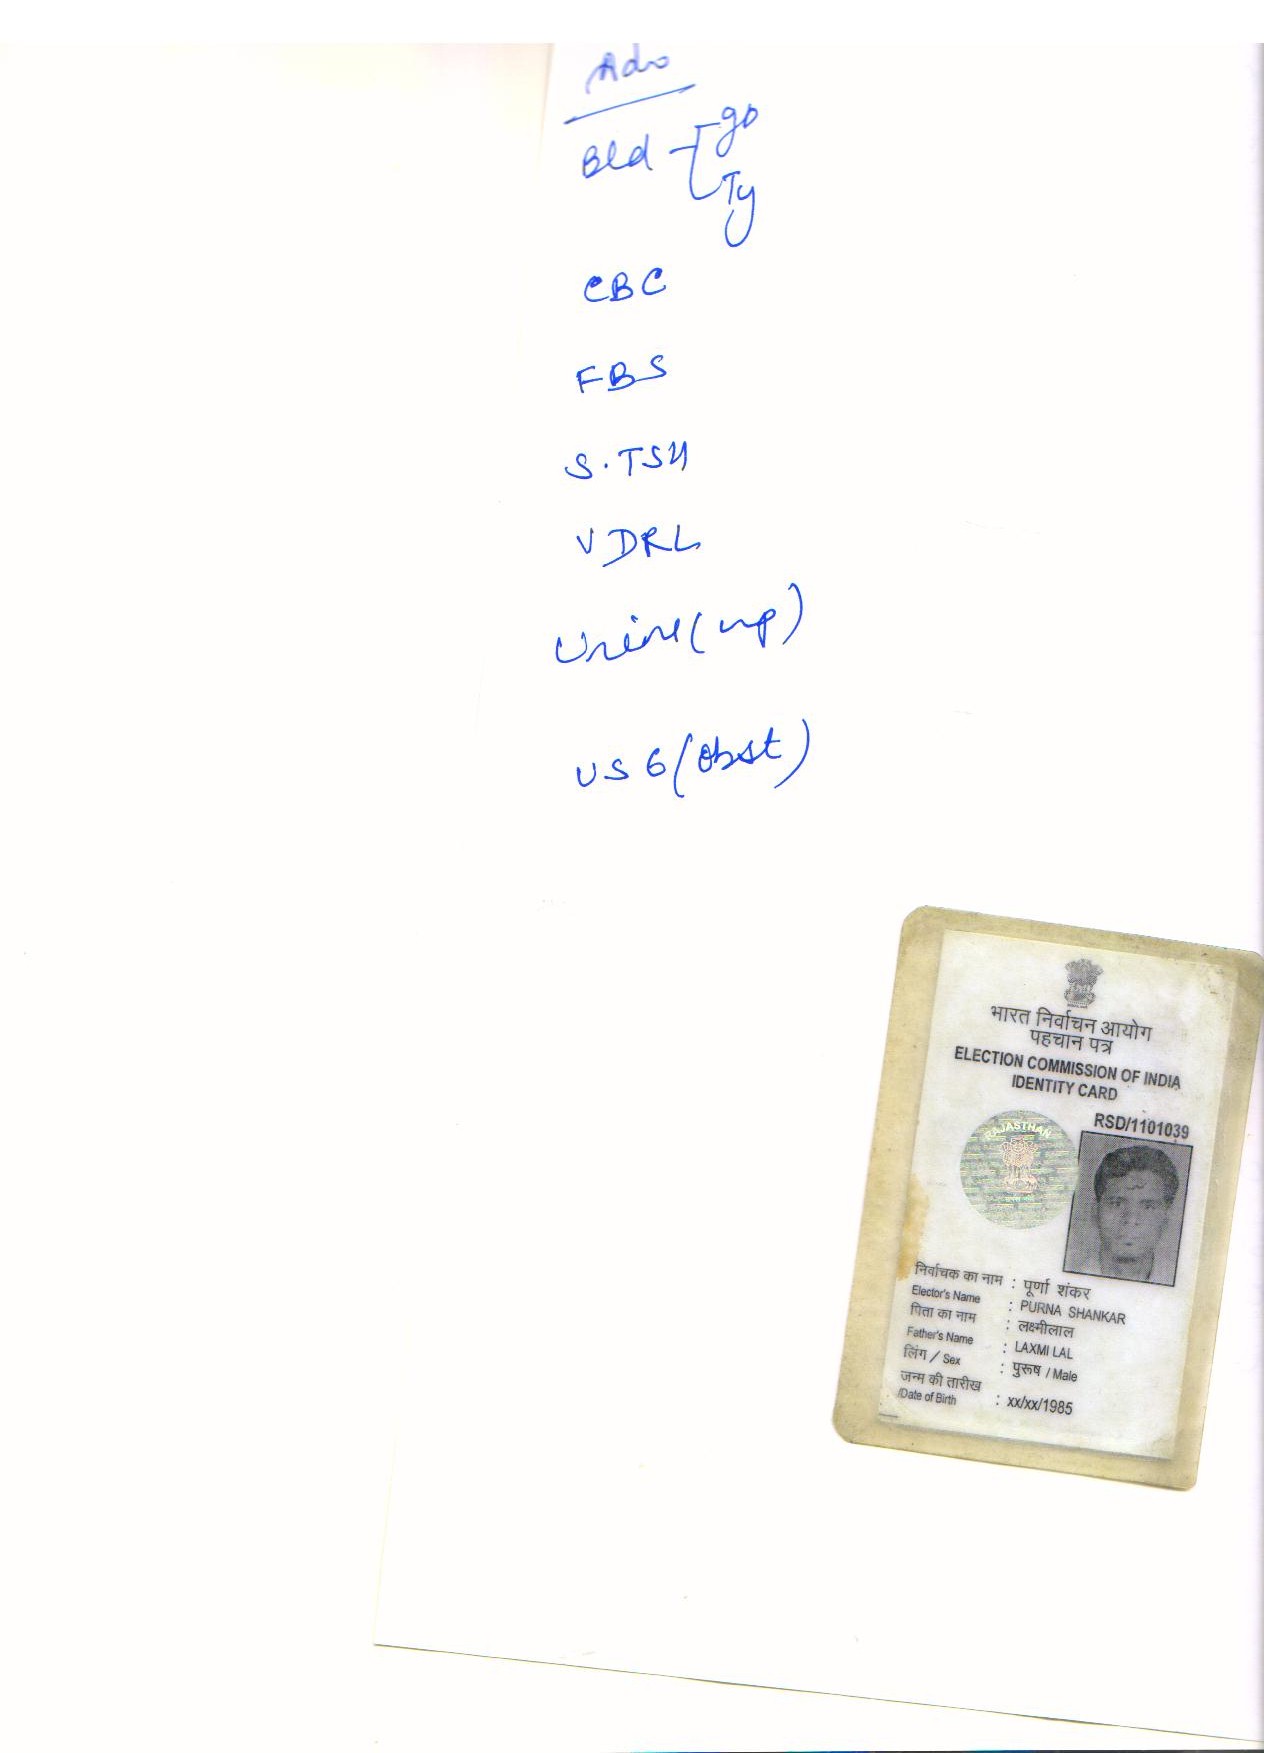 Adv
Bld - go
Ty
CBC
FBS
S. TSH
VDRL
Urine (up)
USG (obst)
भारत निर्वाचन आयोग
पहचान पत्र
ELECTION COMMISSION OF INDIA
IDENTITY CARD
RSD/1101039
RAJASTHAN
निर्वाचक का नाम : पूर्णा शंकर
Elector's Name : PURNA SHANKAR
पिता का नाम : लक्ष्मीलाल
Father's Name : LAXMI LAL
लिंग / Sex : पुरूष / Male
जन्म की तारीख
/Date of Birth : xx/xx/1985